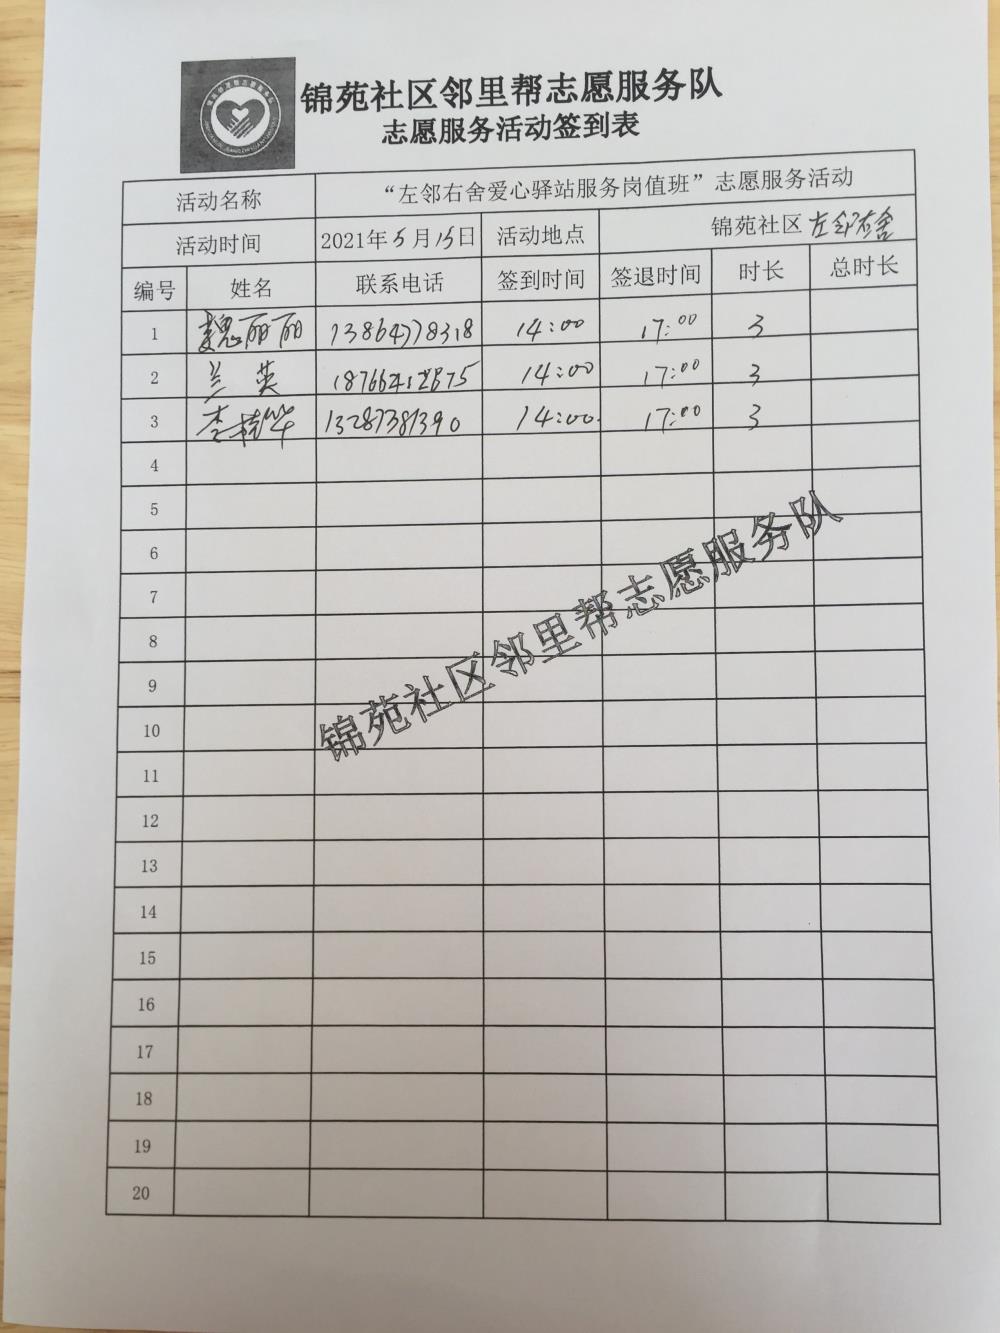 锦苑社区邻里帮志愿服务队
志愿服务活动签到表
活动名称 “左邻右舍爱心驿站服务岗值班”志愿服务活动
活动时间 2021年5月15日 活动地点 锦苑社区 左邻右舍
编号 姓名 联系电话 签到时间 签退时间 时长 总时长
1 魏丽丽 13864778318 14:00 17:00 3
2 兰英 14:00 17:00 3
3 李桂华 13287381390 14:00 17:00 3
4
5
6
7
8
9
10
11
12
13
14
15
16
17
18
19
20
锦苑社区邻里帮志愿服务队